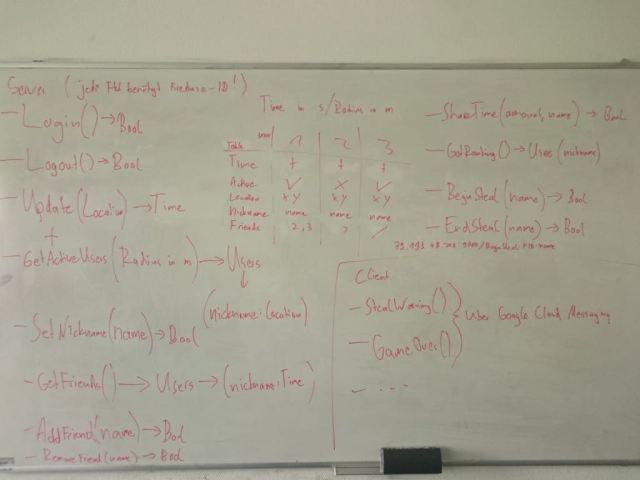 Server (jede Fkt benötigt Firebase-ID!)
- Login() → Bool
- Logout() → Bool
- Update (Location) → Time
+
- GetActiveUsers (Radius in m) → Users
↓
(nickname: Location)
- SetNickname (name) → Bool
- GetFriends() → Users → (nickname: Time)
- AddFriend (name) → Bool
- RemoveFriend (name) → Bool
Time in s / Radius in m
Table 1 2 3
Time t t t
Active ✓ ✗ ✓
Location x y x y x y
Nickname name name name
Friends 2,3
- ShareTime (amount, name) → Bool
- GetRanking() → Users (nickname)
- BeginSteal (name) → Bool
- EndSteal (name) → Bool
Client
- StealWarning()
- GameOver()
} über Google Cloud Messaging
- ...